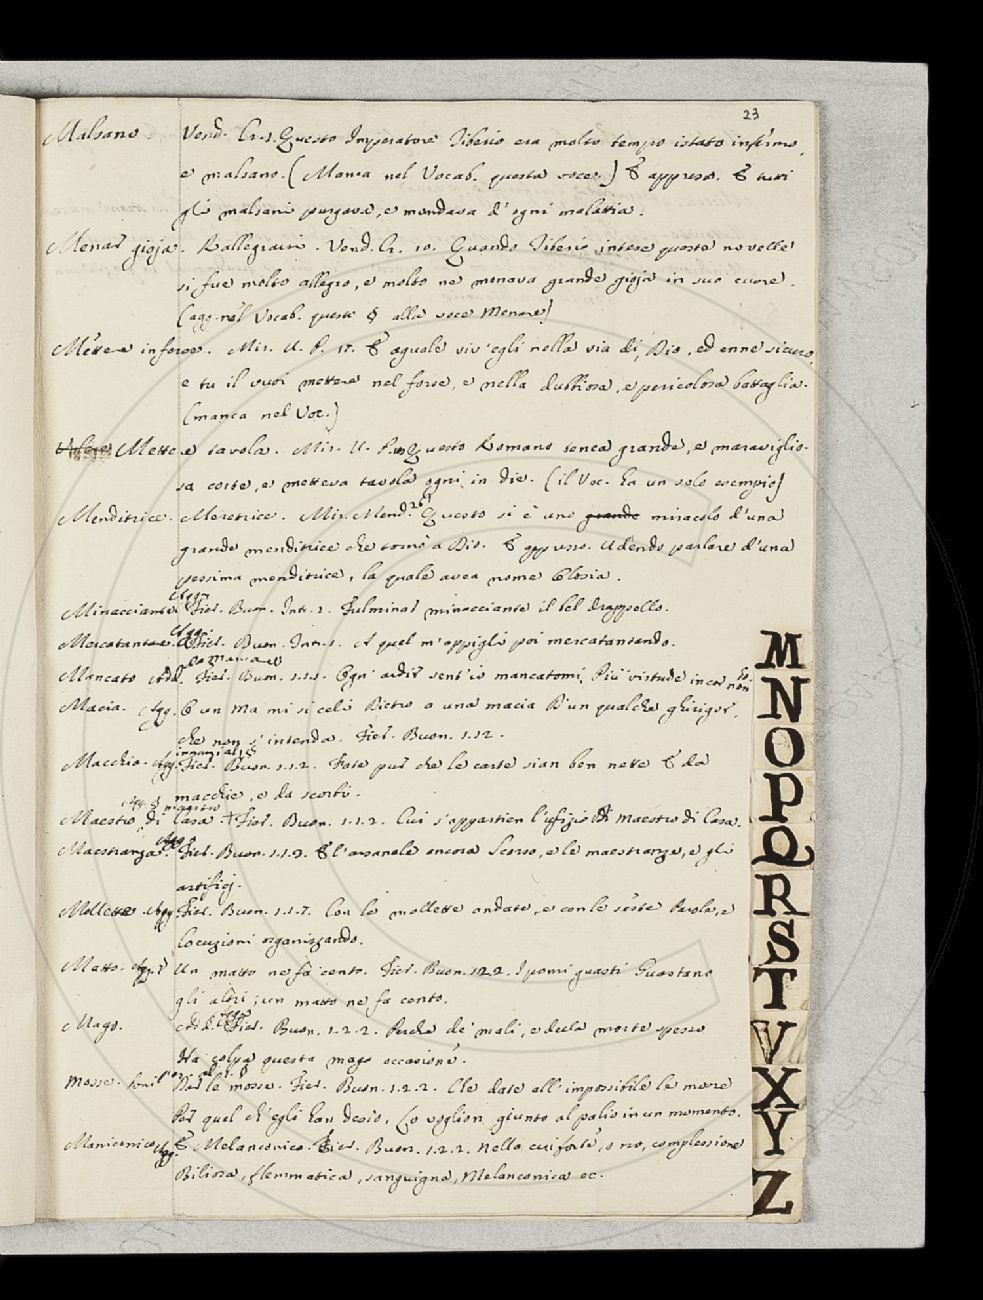 23
Malsano Vend. Cr. 1. Questo Imperatore Tiberio era molto tempo istato infermo,
e malsano. (Manca nel Vocab. questa voce.) E appresso. E tutti
gli malsani purgava, e mondava d'ogni malattia.
Menar gioja. Rallegrarsi. Vend. Cr. 10. Quando Tiberio intese questa novelle
si fue molto allegro, e molto ne menava grande gioja in suo cuore.
(agg. nel Vocab. questo § alla voce Menare)
Mettere in forse. Mir. M. P. 17. E aguale viv'egli nella via di Dio, ed enne sicuro,
e tu il vuoi mettere nel forse, e nella dubbiosa, e pericolosa battaglia.
(manca nel Voc.)
Mettere tavola. Mir. M. P. Questo Romano tenea grande, e maraviglio-
sa corte, e metteva tavola ogni in die. (il Voc. ha un solo esempio)
Menditrice. Meretrice. Mir. Mend. 26. Questo si è uno grande miracolo d'una
grande menditrice che tornò a Dio. E appresso. Udendo parlare d'una
pessima menditrice, la quale avea nome Closia.
Minacciante. Agg. Fier. Buon. Int. 2. Fulminar minacciante il bel drappello.
Mercatantare. Agg. Fier. Buon. Intr. 1. A quel m'appigli poi mercatantando.
Mancato Add. da Mancare Fier. Buon. 1.1.1. Ogni ardir sent'io mancatomi, Più virtude in cor non
Macia. Agg. E un Ma mi si celi Dietro a una macia D'un qualche ghirigor,
che non s'intenda. Fier. Buon. 1.1.2.
Macchia. Agg. innanzi al § Fier. Buon. 1.1.2. Fate pur che le carte sian ben nette E da
macchie, e da scorbi.
Maestro di Casa. Agg. § maestro Fier. Buon. 1.1.2. Cui s'appartien l'ufizio Di Maestro di Casa.
Maestranza. Agg. Fier. Buon. 1.1.3. E l'arsenale ancora Scorso, e le maestranze, e gli
artifici.
Mollette. Agg. Fier. Buon. 1.1.7. Con le mollette andate, e con le seste Parola, e
locuzioni organizzando.
Matto. Agg. Un matto ne fa cento. Fier. Buon. 1.2.2. I pomi guasti Guastano
gli altri; un matto ne fa cento.
Mago. Add. Agg. Fier. Buon. 1.2.2. Perche de' mali, e della morte spesso
Ha colpa questa maga occasione.
Mosse. Dar le mosse. Fier. Buon. 1.2.2. Che date all'impossibile le mosse
Per quel ch'egli han desio, Lo voglion giunto al palio in un momento.
Maniconico. Agg. E Melanconico. Fier. Buon. 1.2.2. Nella cui forte, o no, complessione
Biliosa, flemmatica, sanguigna, Melanconica ec.
M
N
O
P
Q
R
S
T
V
X
Y
Z